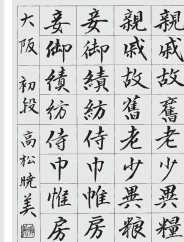 親戚故舊老少異糧
親戚故舊老少異粮
妾御績紡侍巾帷房
妾御績紡侍巾帷房
大阪 初段 高松曉美